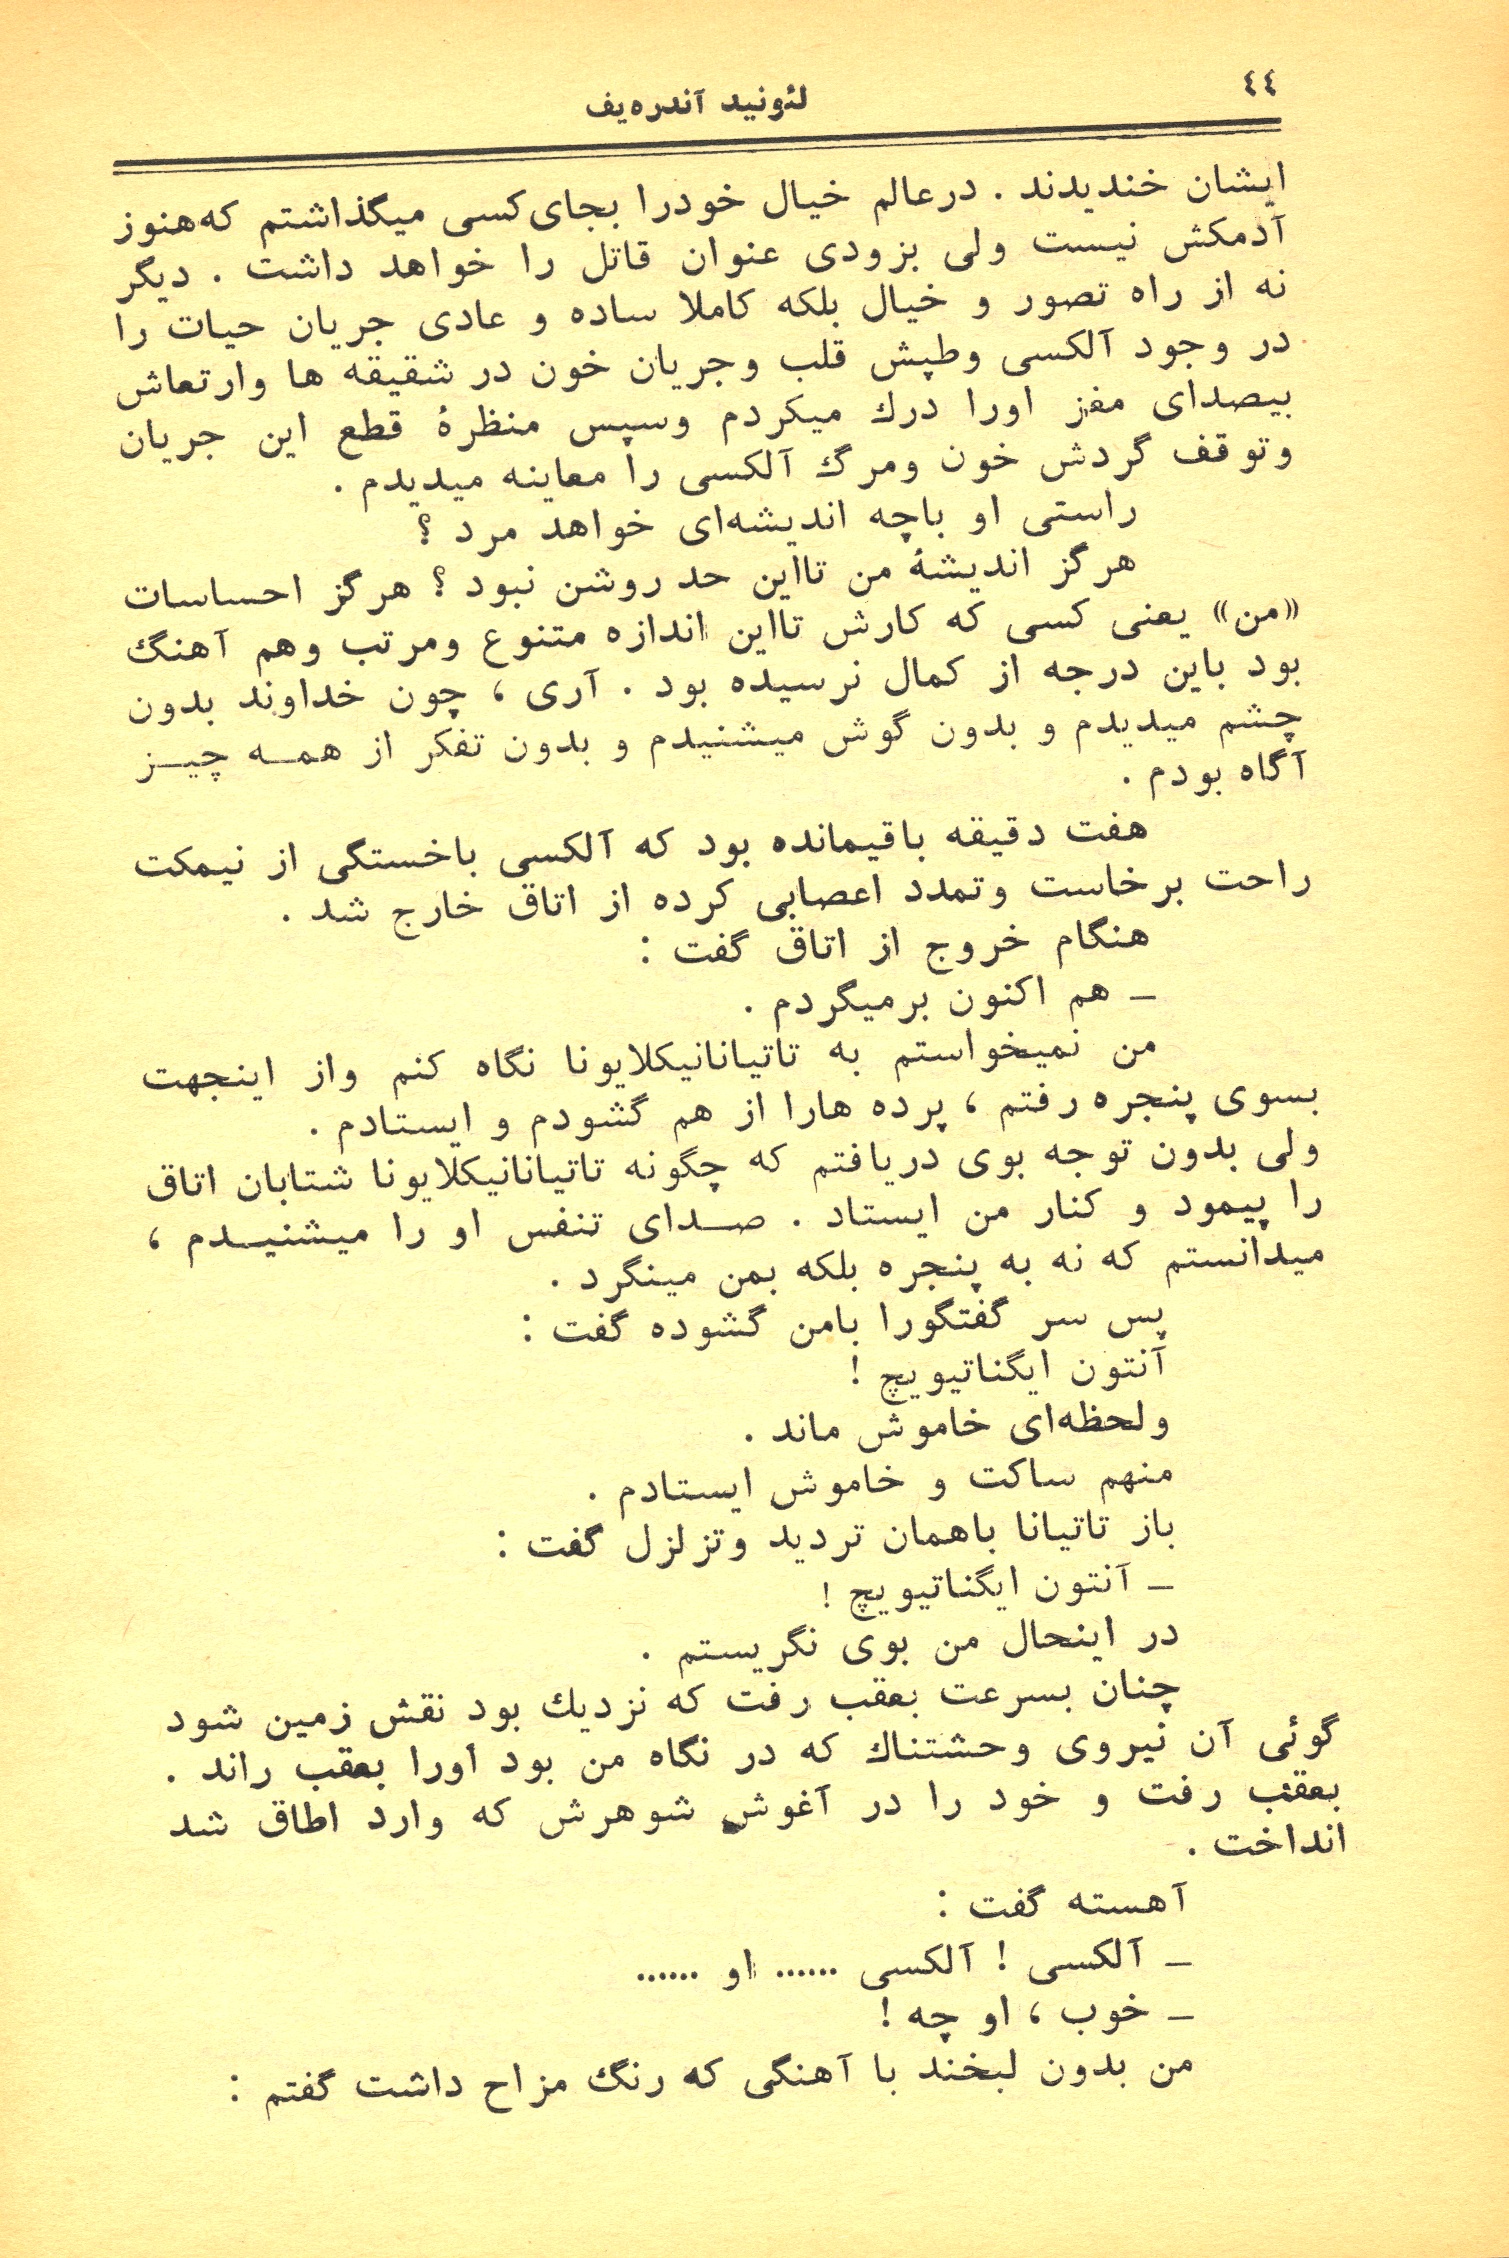 ٤٤
لئونید آندره‌یف
ایشان خندیدند . درعالم خیال خودرا بجای‌کسی میگذاشتم که‌هنوز
آدمکش نیست ولی بزودی عنوان قاتل را خواهد داشت . دیگر
نه از راه تصور و خیال بلکه کاملا ساده و عادی جریان حیات را
در وجود آلکسی وطپش قلب وجریان خون در شقیقه ها وارتعاش
بیصدای مغز اورا درك میکردم وسپس منظرهٔ قطع این جریان
وتوقف گردش خون ومرگ آلکسی را معاینه میدیدم .
راستی او باچه اندیشه‌ای خواهد مرد ؟
هرگز اندیشهٔ من تااین حد روشن نبود ؟ هرگز احساسات
«من» یعنی کسی که کارش تااین اندازه متنوع ومرتب وهم آهنگ
بود باین درجه از کمال نرسیده بود . آری ، چون خداوند بدون
چشم میدیدم و بدون گوش میشنیدم و بدون تفکر از همـه چیـز
آگاه بودم .
هفت دقیقه باقیمانده بود که آلکسی باخستگی از نیمکت
راحت برخاست وتمدد اعصابی کرده از اتاق خارج شد .
هنگام خروج از اتاق گفت :
ـ هم اکنون برمیگردم .
من نمیخواستم به تاتیانانیکلایونا نگاه کنم واز اینجهت
بسوی پنجره رفتم ، پرده هارا از هم گشودم و ایستادم .
ولی بدون توجه بوی دریافتم که چگونه تاتیانانیکلایونا شتابان اتاق
را پیمود و کنار من ایستاد . صـدای تنفس او را میشنیـدم ،
میدانستم که نه به پنجره بلکه بمن مینگرد .
پس سر گفتگورا بامن گشوده گفت :
آنتون ایگناتیویچ !
ولحظه‌ای خاموش ماند .
منهم ساکت و خاموش ایستادم .
باز تاتیانا باهمان تردید وتزلزل گفت :
ـ آنتون ایگناتیویچ !
در اینحال من بوی نگریستم .
چنان بسرعت بعقب رفت که نزدیك بود نقش زمین شود
گوئی آن نیروی وحشتناك که در نگاه من بود اورا بعقب راند .
بعقب رفت و خود را در آغوش شوهرش که وارد اطاق شد
انداخت .
آهسته گفت :
ـ آلکسی ! آلکسی ...... او ......
ـ خوب ، او چه !
من بدون لبخند با آهنگی که رنگ مزاح داشت گفتم :